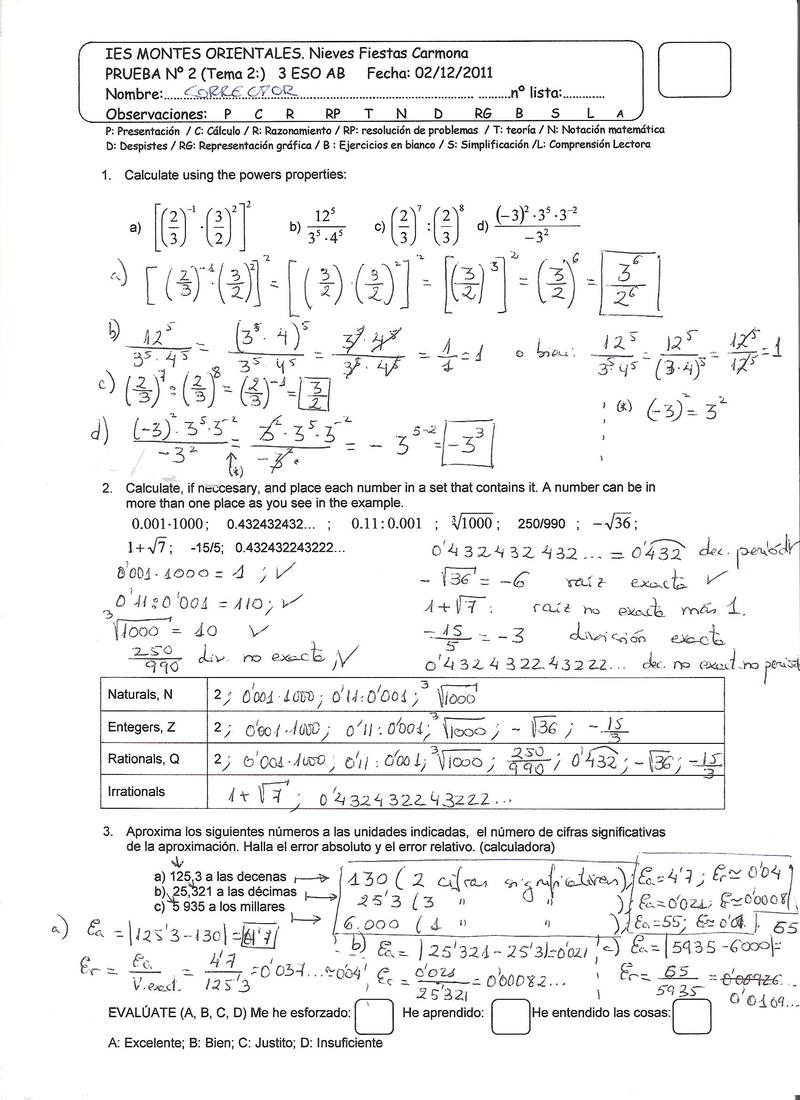 IES MONTES ORIENTALES. Nieves Fiestas Carmona
PRUEBA Nº 2 (Tema 2:) 3 ESO AB Fecha: 02/12/2011
Nombre:.....CORRECTOR..... nº lista:............
Observaciones: P C R RP T N D RG B S L A
P: Presentación / C: Cálculo / R: Razonamiento / RP: resolución de problemas / T: teoría / N: Notación matemática
D: Despistes / RG: Representación gráfica / B : Ejercicios en blanco / S: Simplificación /L: Comprensión Lectora
1. Calculate using the powers properties:
a) [(2/3)^-1 · (3/2)^2]^2 b) 12^5 / 3^5·4^5 c) (2/3)^7 : (2/3)^8 d) (−3)^2·3^5·3^-2 / −3^2
a) [(2/3)^-1 · (3/2)^2]^2 = [(3/2) · (3/2)^2]^2 = [(3/2)^3]^2 = (3/2)^6 = 3^6/2^6
b) 12^5 / 3^5·4^5 = (3^5·4)^5 / 3^5 4^5 = 3^5·4^5 / 3^5·4^5 = 1/1 = 1 o bien: 12^5 / 3^5 4^5 = 12^5 / (3·4)^5 = 12^5 / 12^5 = 1
c) (2/3)^7 : (2/3)^8 = (2/3)^-1 = 3/2 (*) (-3)^2 = 3^2
d) (-3)^2·3^5·3^-2 / -3^2 = 3^2·3^5·3^-2 / -3^2 = - 3^5-2 = -3^3
(*)
2. Calculate, if neccesary, and place each number in a set that contains it. A number can be in
more than one place as you see in the example.
0.001·1000 ; 0.432432432... ; 0.11: 0.001 ; ∛1000 ; 250/990 ; −√36 ;
1+√7 ; -15/5; 0.432432243222...
0'432432432... = 0'432 dec. periód
0'001·1000 = 1 ; √
- √36 = -6 raíz exacta √
0'11:0'001 = 110; √
1+√7 : raíz no exacta más 1.
∛1000 = 10 √
-15/5 = -3 división exacta
250/990 div. no exacta, √
0'432432243222... dec. no exact. no period
Naturals, N 2 ; 0'001·1000; 0'11:0'001; ∛1000
Entegers, Z 2 ; 0'001·1000; 0'11:0'001; ∛1000; -√36; -15/3
Rationals, Q 2; 0'001·1000; 0'11:0'001; ∛1000; 250/990; 0'432; -√36; -15/3
Irrationals 1+√7 ; 0'432432243222...
3. Aproxima los siguientes números a las unidades indicadas, el número de cifras significativas
de la aproximación. Halla el error absoluto y el error relativo. (calculadora)
a) 125,3 a las decenas → 130 (2 cifras significativas); Ea=4'7; Er≃0'04
b) 25,321 a las décimas → 25'3 (3 " " ); Ea=0'021; Er≃0'0008
c) 5 935 a los millares → 6.000 (1 " " ); Ea=55; Er≃0'01 65
a) Ea = |125'3-130| = 4'7
b) Ea = |25'321-25'3|=0'021
c) Ea=|5935-6000|=
Er = Ea / V.exact. = 4'7 / 125'3 = 0'037...≃0'04
Er = 0'021 / 25'321 = 0'00082...
Er = 65 / 5935 = 0'00926... 0'0109...
EVALÚATE (A, B, C, D) Me he esforzado: He aprendido: He entendido las cosas:
A: Excelente; B: Bien; C: Justito; D: Insuficiente